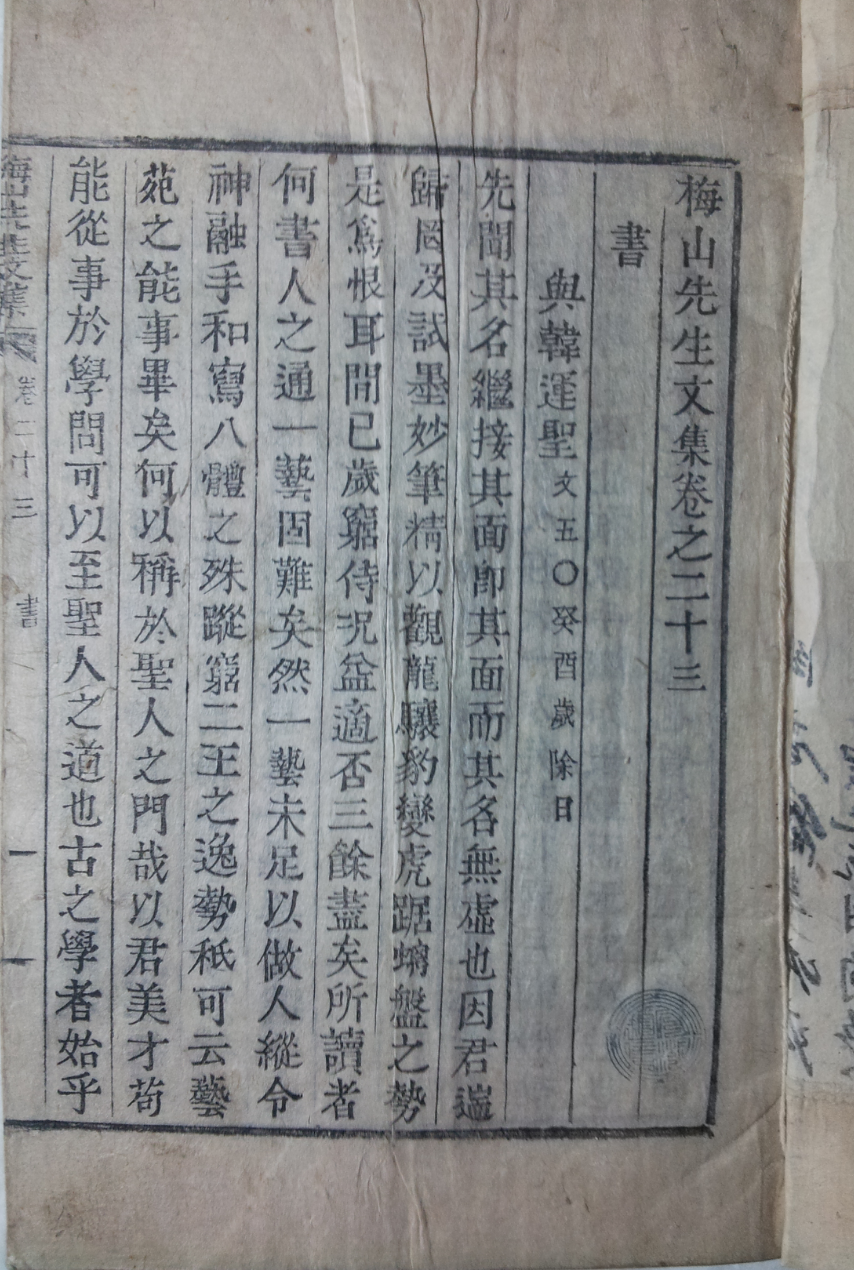 梅山先生文集卷之二十三
書
與韓運聖文五〇癸酉歲除日
先聞其名繼接其面卽其面而其名無虛也因君遄
歸罔及試墨妙筆精以觀龍驤豹變虎踞螭盤之勢
是爲恨耳間已歲窮侍況益適否三餘盡矣所讀者
何書人之通一藝固難矣然一藝未足以做人縱令
神融手和寫八體之殊蹤窮二王之逸勢秖可云藝
苑之能事畢矣何以稱於聖人之門哉以君美才苟
能從事於學問可以至聖人之道也古之學者始乎
梅山先生文集 卷二十三 書 一